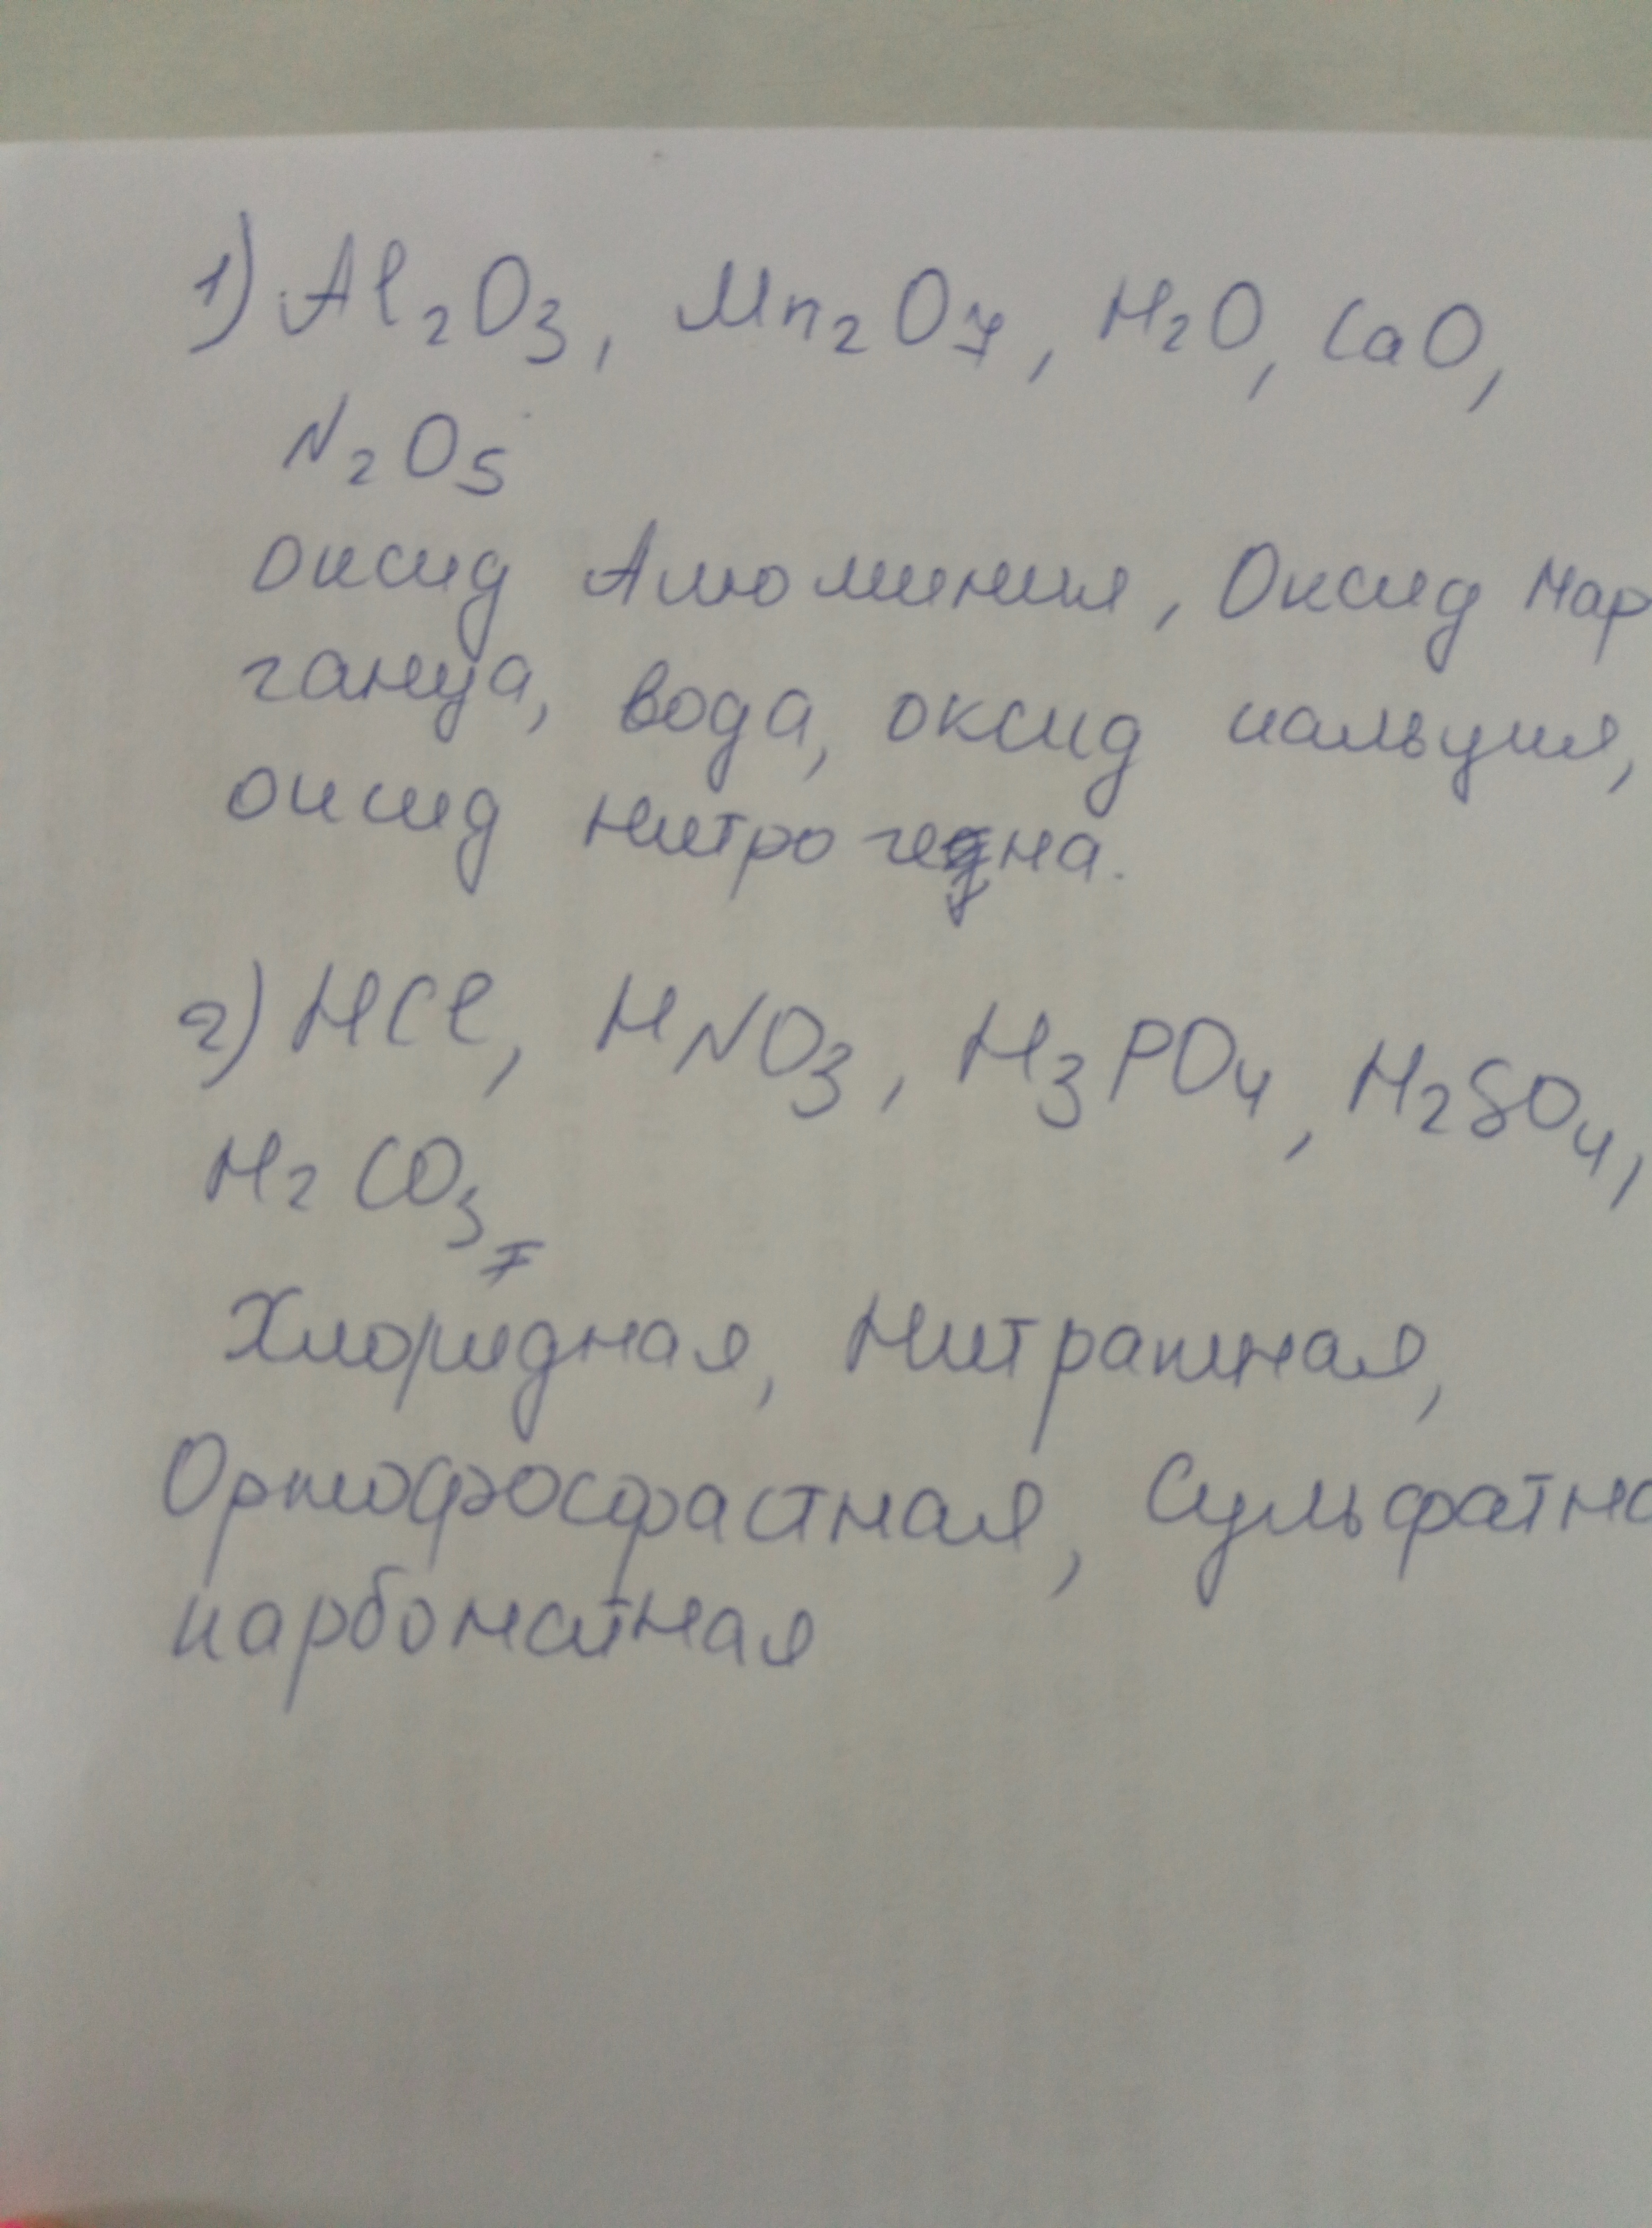 1) Al₂O₃, Mn₂O₇, H₂O, CaO,
N₂O₅
оксид Алюминия, Оксид Мар
ганца, вода, оксид кальция,
оксид Нитрогена.
2) HCl, HNO₃, H₃PO₄, H₂SO₄,
H₂CO₃
Хлоридная, Нитратная,
Ортофосфастная, Сульфатна
карбонатная